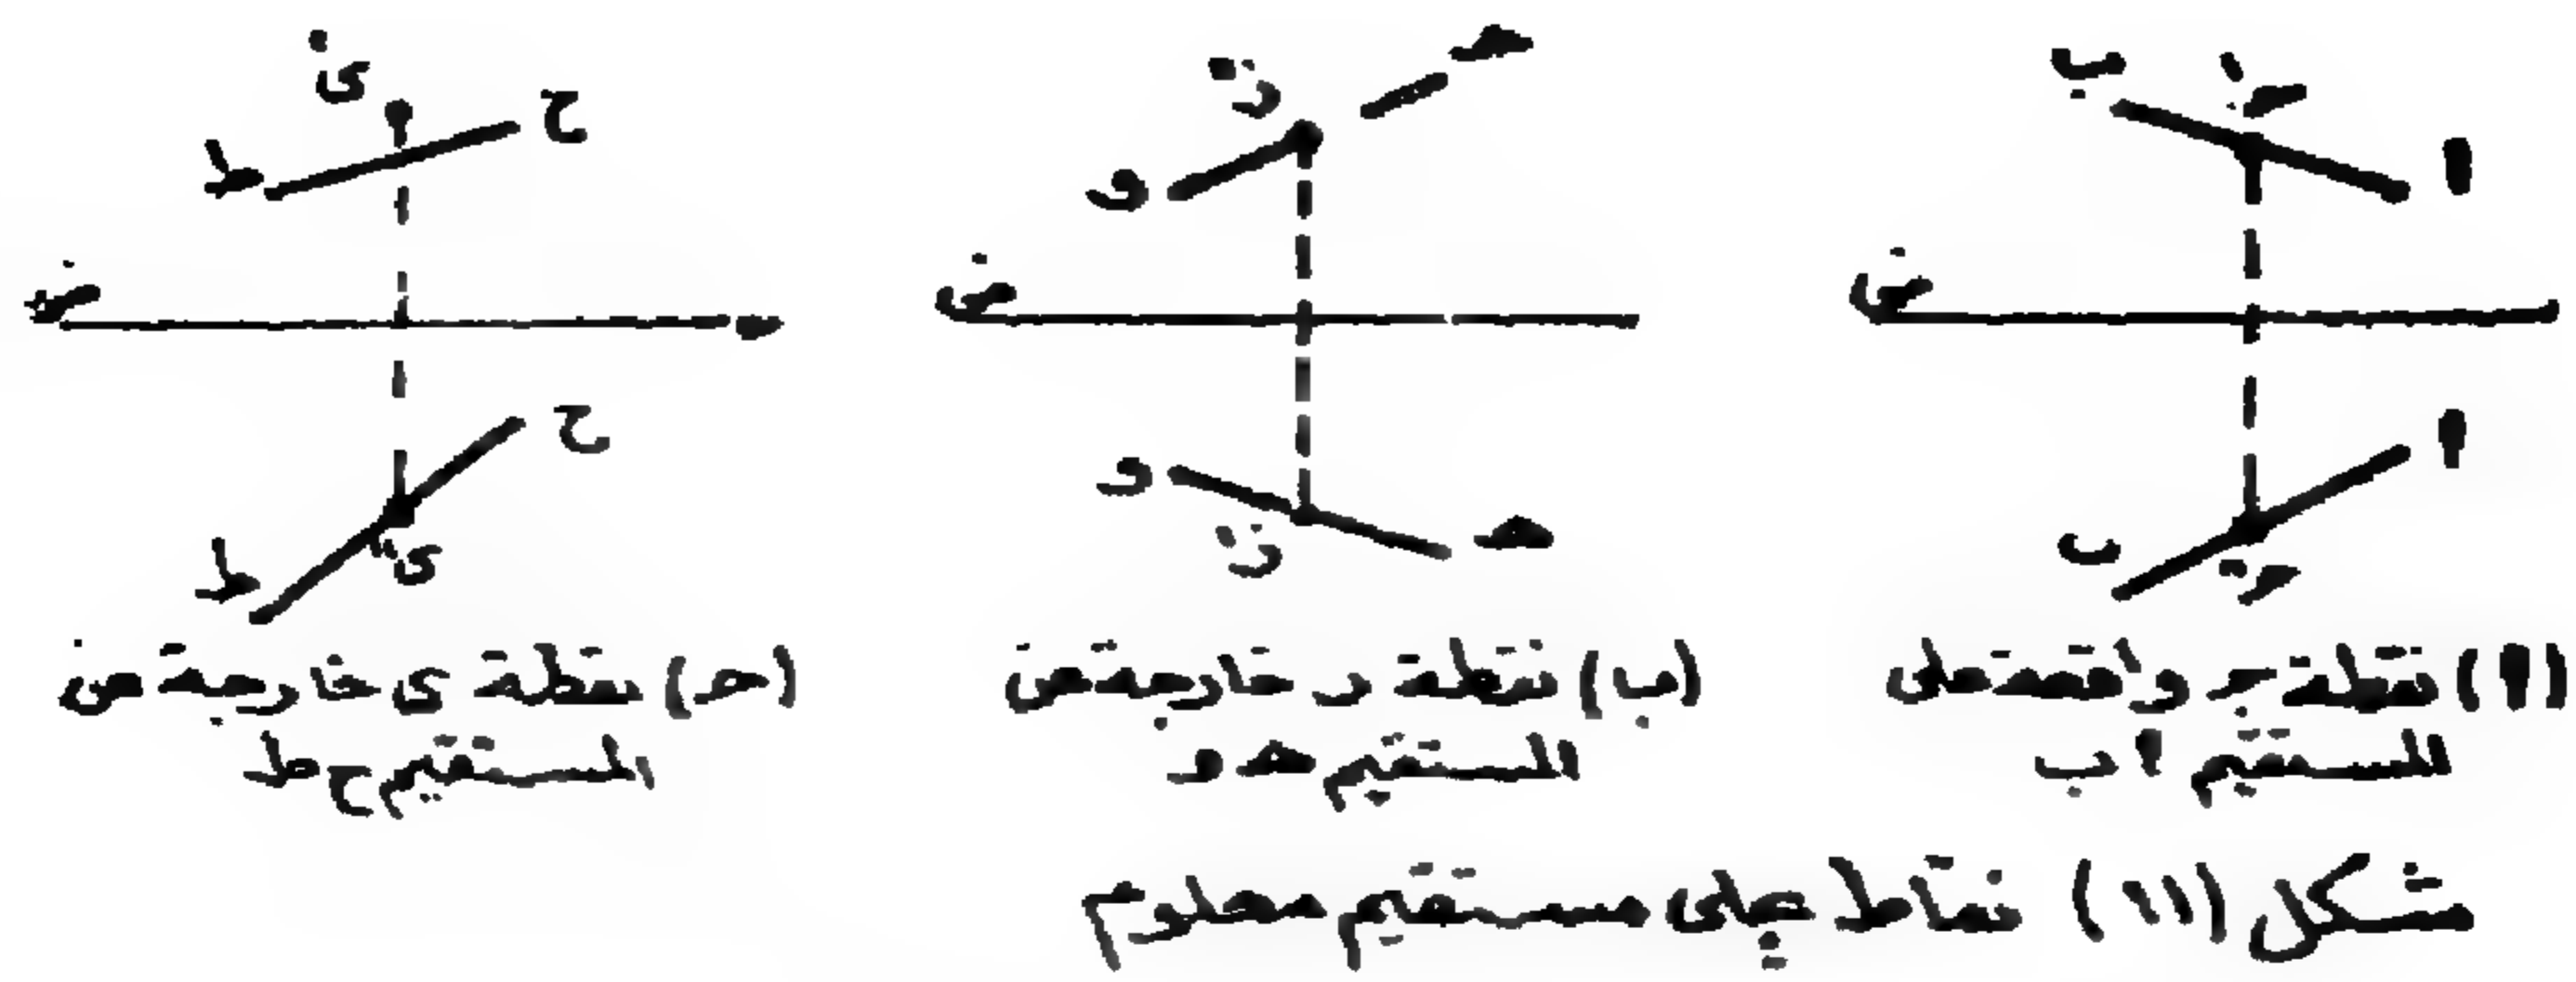 ب جَ ا
ض
ا
ب جً
(ا) نقطة جـ واقعة على
المستقيم ا ب
هـ
و
ض
و
هـ
(ب) نقطة ر خارجة عن
المستقيم هـ و
ىَ
ح
ط
ض
ح
ىً
ط
(حـ) نقطة ى خارجة عن
المستقيم ح ط
شكل (١١) نقاط على مستقيم معلوم